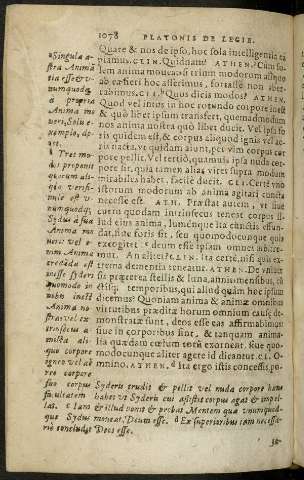 1078 PLATONIS DE LEGIB.
Quare & nos de ipso, hoc sola intelligentia ca
piamus. CLIN. Quidnam? ATHEN. Cum so-
lem anima moueat: si trium modorum aliquo
ab ea fieri hoc asserimus, forasse non aber-
rabimus. CLI. Quos dicis modos? ATHEN.
Quod vel intus in hoc rotundo corpore inest
& quò libet ipsum transfert, quemadmodum
nos anima nostra quò libet ducit. Vel ipsa fo
ris quidem est & corpus aliquod ignis vel ae-
ris nacta, vt quidam aiunt, per vim corpus cor
pore pellit. Vel tertiò, quamuis ipsa nuda cor-
pore sit, quia tamen alias vires supra modum
mirabiles habet, facilè ducit. CLI. Certè vno
istorum modorum ab anima agitari cuncta
necesse est. ATH. Præstat autem, vt siue
curru quodam intrinsecus teneat corpus il-
lud eius anima, lumenque ita cunctis effun-
dat, siue foris sit, seu quomodocunque quis
excogitet deum esse ipsam omnes arbitre-
mur. An aliter? CLIN. Ita certè, nisi quis ex-
trema dementia teneatur. ATHEN. De vniuer
sis præterea stellis & luna, annis mensibus, cũ
ctisque temporibus, qui aliud quàm hoc ipsum
dicemus? Quoniam anima & animæ omnibus
virtutibus præditæ horum omnium causæ de-
monstratæ sunt, deos esse eas affirmabimus:
siue in corporibus sint, & tanquam anima-
lia quædam cœlum totũ exornent, siue quo-
modocunque aliter agere id dicantur. CLI. O-
mnino. ATHEN. Ita ergo istis concessis po-
Singula a-
stra Animā
tia esse & v-
numquodq;
a propria
Anima mo
ueri, Solis e-
xemplo, do-
cet.
Tres mo-
dos proponit
ignem vel aë
rem corpore
suo corpus Syderis trudit & pellit vel nuda corpore hanc
facultatem habet vt Syderis cui asistit corpus agat & impel-
lat. c Iam & illud ponit & probat Mentem quæ vnumquod-
que Sydus moueat, Deum esse. d Ex superioribus iam necessa-
riò concludit Deos esse.